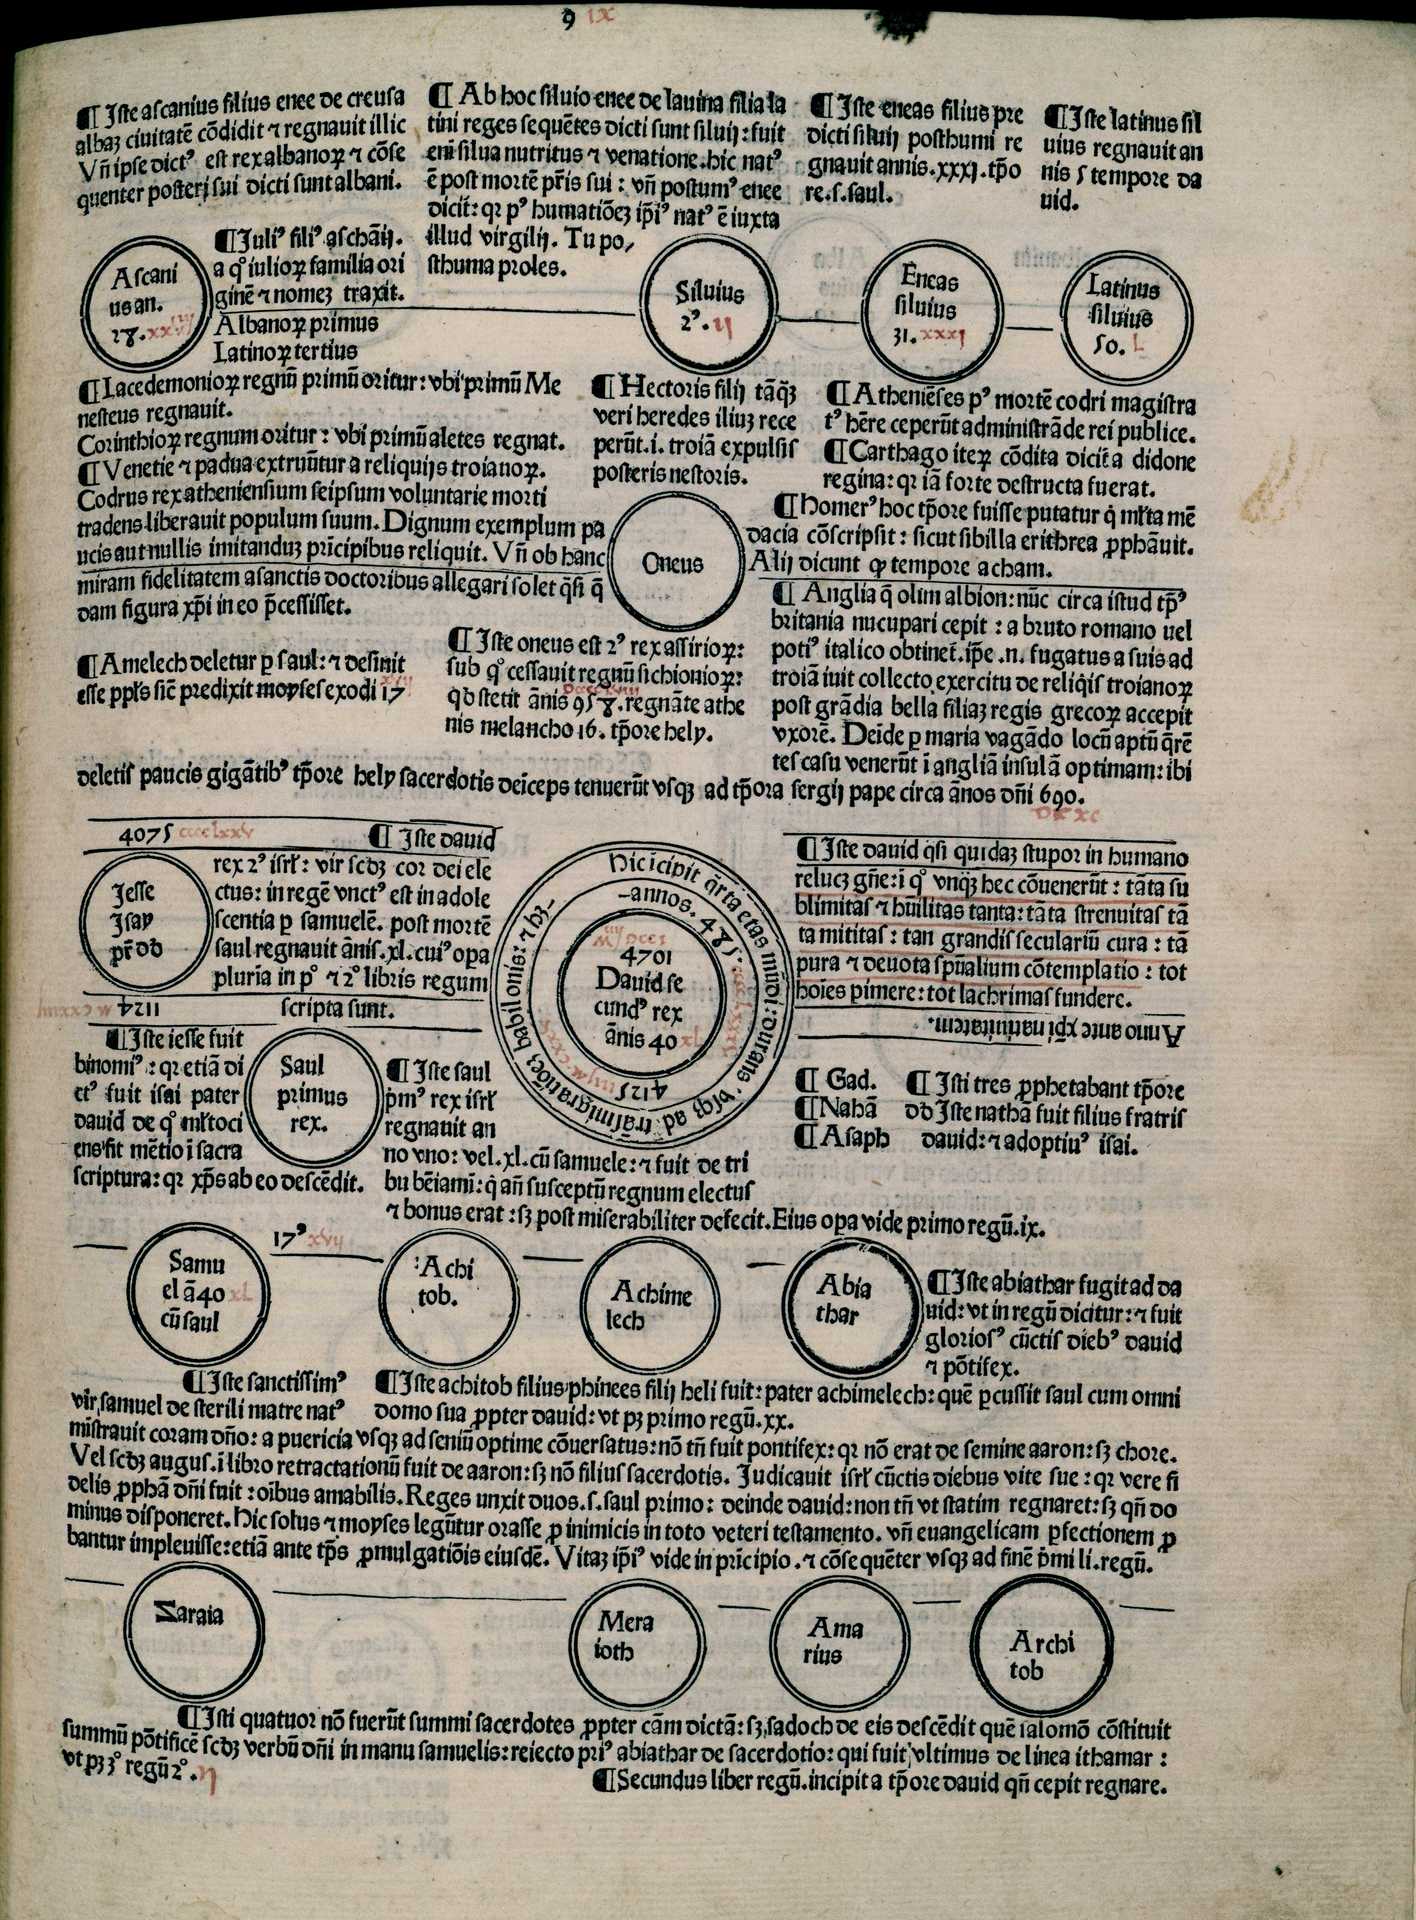 9 ix
¶ Iste ascanius filius enee de creusa
albaʒ ciuitatē cōdidit ⁊ regnauit illic
Vn̄ ipse dictꝰ est rex albanoꝝ ⁊ cōse
quenter posteri sui dicti sunt albani.
¶ Iuliꝰ filiꝰ aschāij.
a qͦ iulioꝝ familia ori
ginē ⁊ nomeʒ traxit.
Albanoꝝ primus
Latinoꝝ tertius
¶ Ab hoc siluio enee de lauina filia la
tini reges sequētes dicti sunt siluij : fuit
eni̅ silua nutritus ⁊ venatione. hic natꝰ
ē post mortē pr̄is sui : vn̄ postumꝰ enee
dicit̄ : qꝛ pꝰ humatiōeʒ ip̄iꝰ natꝰ ē iuxta
illud virgilij. Tu po,
sthuma proles.
¶ Iste eneas filius pre
dicti siluij posthumi re
gnauit annis. xxxj. tp̄o
re. s. saul.
¶ Iste latinus sil
uius regnauit an
nis 5 tempore da
uid.
Ascani
us an.
28. xxviij
Siluius
2ꝰ. ij
Eneas
siluius
31. xxxj
Latinus
siluius
50. L
¶ Lacedemonioꝝ regnū primū oritur : vbi primū Me
nesteus regnauit.
Corinthioꝝ regnum oritur : vbi primū aletes regnat.
¶ Venetie ⁊ padua extruūtur a reliquijs troianoꝝ.
Codrus rex atheniensium seipsum voluntarie morti
tradens liberauit populum suum. Dignum exemplum pa
ucis aut nullis imitanduʒ pricipibus reliquit. Vn̄ ob hanc
miram fidelitatem a sanctis doctoribus allegari solet q̄si q̄
dam figura xp̄i in eo p̄cessisset.
¶ Hectoris filij tāq̄ʒ
veri heredes iliuʒ rece
perūt. i. troiā expulsis
posteris nestoris.
Oneus
¶ Atheniēses pꝰ mortē codri magistra
tꝰ hēre ceperūt administrāde rei publice.
¶ Carthago iteꝝ cōdita dicit̄ a didone
regina : qꝛ iā forte destructa fuerat.
¶ Homerꝰ hoc tp̄ore fuisse putatur q̇ ml̄ta mē
dacia cōscripsit : sicut sibilla erithrea ꝓphāuit.
Alij dicunt ꝙ tempore acham.
¶ Anglia q̄ olim albion : nūc circa istud tp̄ꝰ
britania nūcupari cepit : a bruto romano uel
potiꝰ italico obtinet̄. ip̄e .n. fugatus a suis ad
troiā iuit collecto exercitu de reliq̇is troianoꝝ
post grādia bella filiaʒ regis grecoꝝ accepit
vxorē. Deīde ꝑ maria vagādo locū aptū q̄rē
tes casu venerūt ī angliā insulā optimam : ibi
deletis paucis gigātibꝰ tp̄ore hely sacerdotis deīceps tenuerūt vsqʒ ad tp̄ora sergij pape circa ānos dn̄i 690.
¶ Amelech deletur ꝑ saul : ⁊ desinit
esse ppl̄s sic̄ predixit moyses exodi 17
¶ Iste oneus est 2ꝰ rex assirioꝝ :
sub qͦ cessauit regnū sichionioꝝ :
qd̄ stetit ānis 958. regnāte athe
nis melancho 16. tp̄ore hely.
4075
¶ Iste dauid
rex 2ꝰ isrl̄ : vir scd̄ʒ cor dei ele
ctus : in regē vnctꝰ est in adole
scentia ꝑ samuelē. post mortē
saul regnauit ānis. xl. cuiꝰ oꝑa
pluria in pͦ ⁊ 2ͦ libris regum
scripta sunt.
Iesse
Isay
pr̄ dd̄
1124
Hic īcipit q̄rta etas mūdi : durans vsqʒ ad trāsmigratiōeʒ babilonis : ⁊ hʒ
annos. 485.
4701
Dauid se
cundꝰ rex
ānis 40 xL
4125
¶ Iste dauid q̄si quidaʒ stupor in humano
relucʒ gn̄e : ī qͦ vnqʒ hec cōuenerūt : tāta su
blimitas ⁊ hūilitas tanta : tāta strenuitas tā
ta mititas : tan grandis seculariū cura : tā
pura ⁊ deuota sp̄ualium cōtemplatio : tot
hoīes pimere : tot lachrimas fundere.
Anno ante xp̄i natiuitatem.
¶ Iste iesse fuit
binomiꝰ : qꝛ etiā di
ctꝰ fuit isai pater
dauid de qͦ ml̄toci
ens fit mētio ī sacra
scriptura : qꝛ xp̄s ab eo descēdit.
Saul
primus
rex.
¶ Iste saul
p̄mꝰ rex isrl̄
regnauit an
no vno : vel. xl. cū samuele : ⁊ fuit de tri
bu bēiami : q̇ an̄ susceptū regnum electus
⁊ bonus erat : sʒ post miserabiliter defecit. Eius oꝑa vide primo regū. ix.
¶ Gad.
¶ Nahā
¶ Asaph
¶ Isti tres ꝓphetabant tp̄ore
dd̄ Iste nathā fuit filius fratris
dauid : ⁊ adoptiuꝰ isai.
Samu
el ā 40 xL
cū saul
17ꝰ xvij
Achi
tob.
Achime
lech
Abia
thar
¶ Iste abiathar fugit ad da
uid : vt in regū dicitur : ⁊ fuit
gloriosꝰ cūctis diebꝰ dauid
⁊ pōtifex.
¶ Iste sanctissimꝰ
vir samuel de sterili matre natꝰ
¶ Iste achitob filius phinees filij heli fuit : pater achimelech : quē ꝑcussit saul cum omni
domo sua ꝓpter dauid : vt pʒ primo regū. xx.
mīstrauit coram dn̄o : a puericia vsqʒ ad seniū optime cōuersatus : nō tn̄ fuit pontifex : qꝛ nō erat de semine aaron : sʒ chore.
Vel scd̄ʒ augus. ī libro retractationū fuit de aaron : sʒ nō filius sacerdotis. Iudicauit isrl̄ cūctis diebus vite sue : qꝛ vere fi
delis ꝓphā dn̄i fuit : oībus amabilis. Reges unxit duos. s. saul primo : deinde dauid : non tn̄ vt statim regnaret : sʒ qn̄ do
minus disponeret. Hic solus ⁊ moyses legūtur orasse ꝓ inimicis in toto veteri testamento. vn̄ euangelicam ꝑfectionem ꝓ
bantur impleuisse : etiā ante tp̄s ꝓmulgatiōis eiusdē. Vitaʒ ip̄iꝰ vide in pricipio. ⁊ cōsequēter vsqʒ ad finē p̄mi li. regū.
Zaraia
Mera
ioth
Ama
rius
Archi
tob
¶ Isti quatuor nō fuerūt summi sacerdotes ꝓpter cām dictā : sʒ sadoch de eis descēdit quē salomō cōstituit
summū pōtificē scd̄ʒ verbū dn̄i in manu samuelis : reiecto priꝰ abiathar de sacerdotio : qui fuit vltimus de linea ithamar :
vt pʒ 3ͦ regū 2ͦ. ij
¶ Secundus liber regū. incipit a tp̄ore dauid qn̄ cepit regnare.